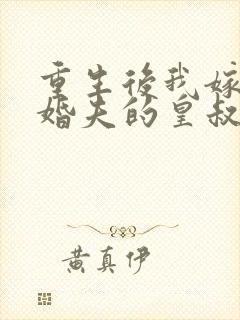 重生後我嫁
婚夫的皇叔
黄真伊